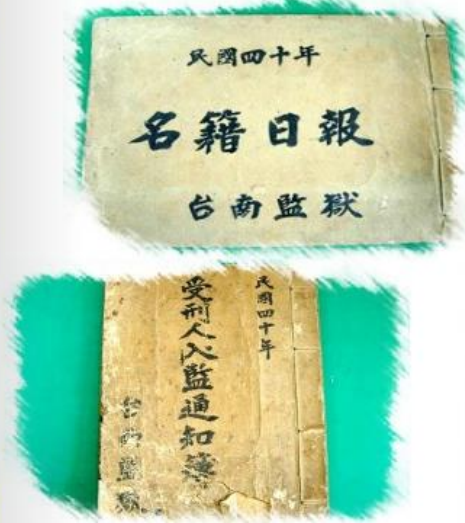 民國四十年
名籍日報
台南監獄
民國四十年
受刑人入監通知簿
台南監獄